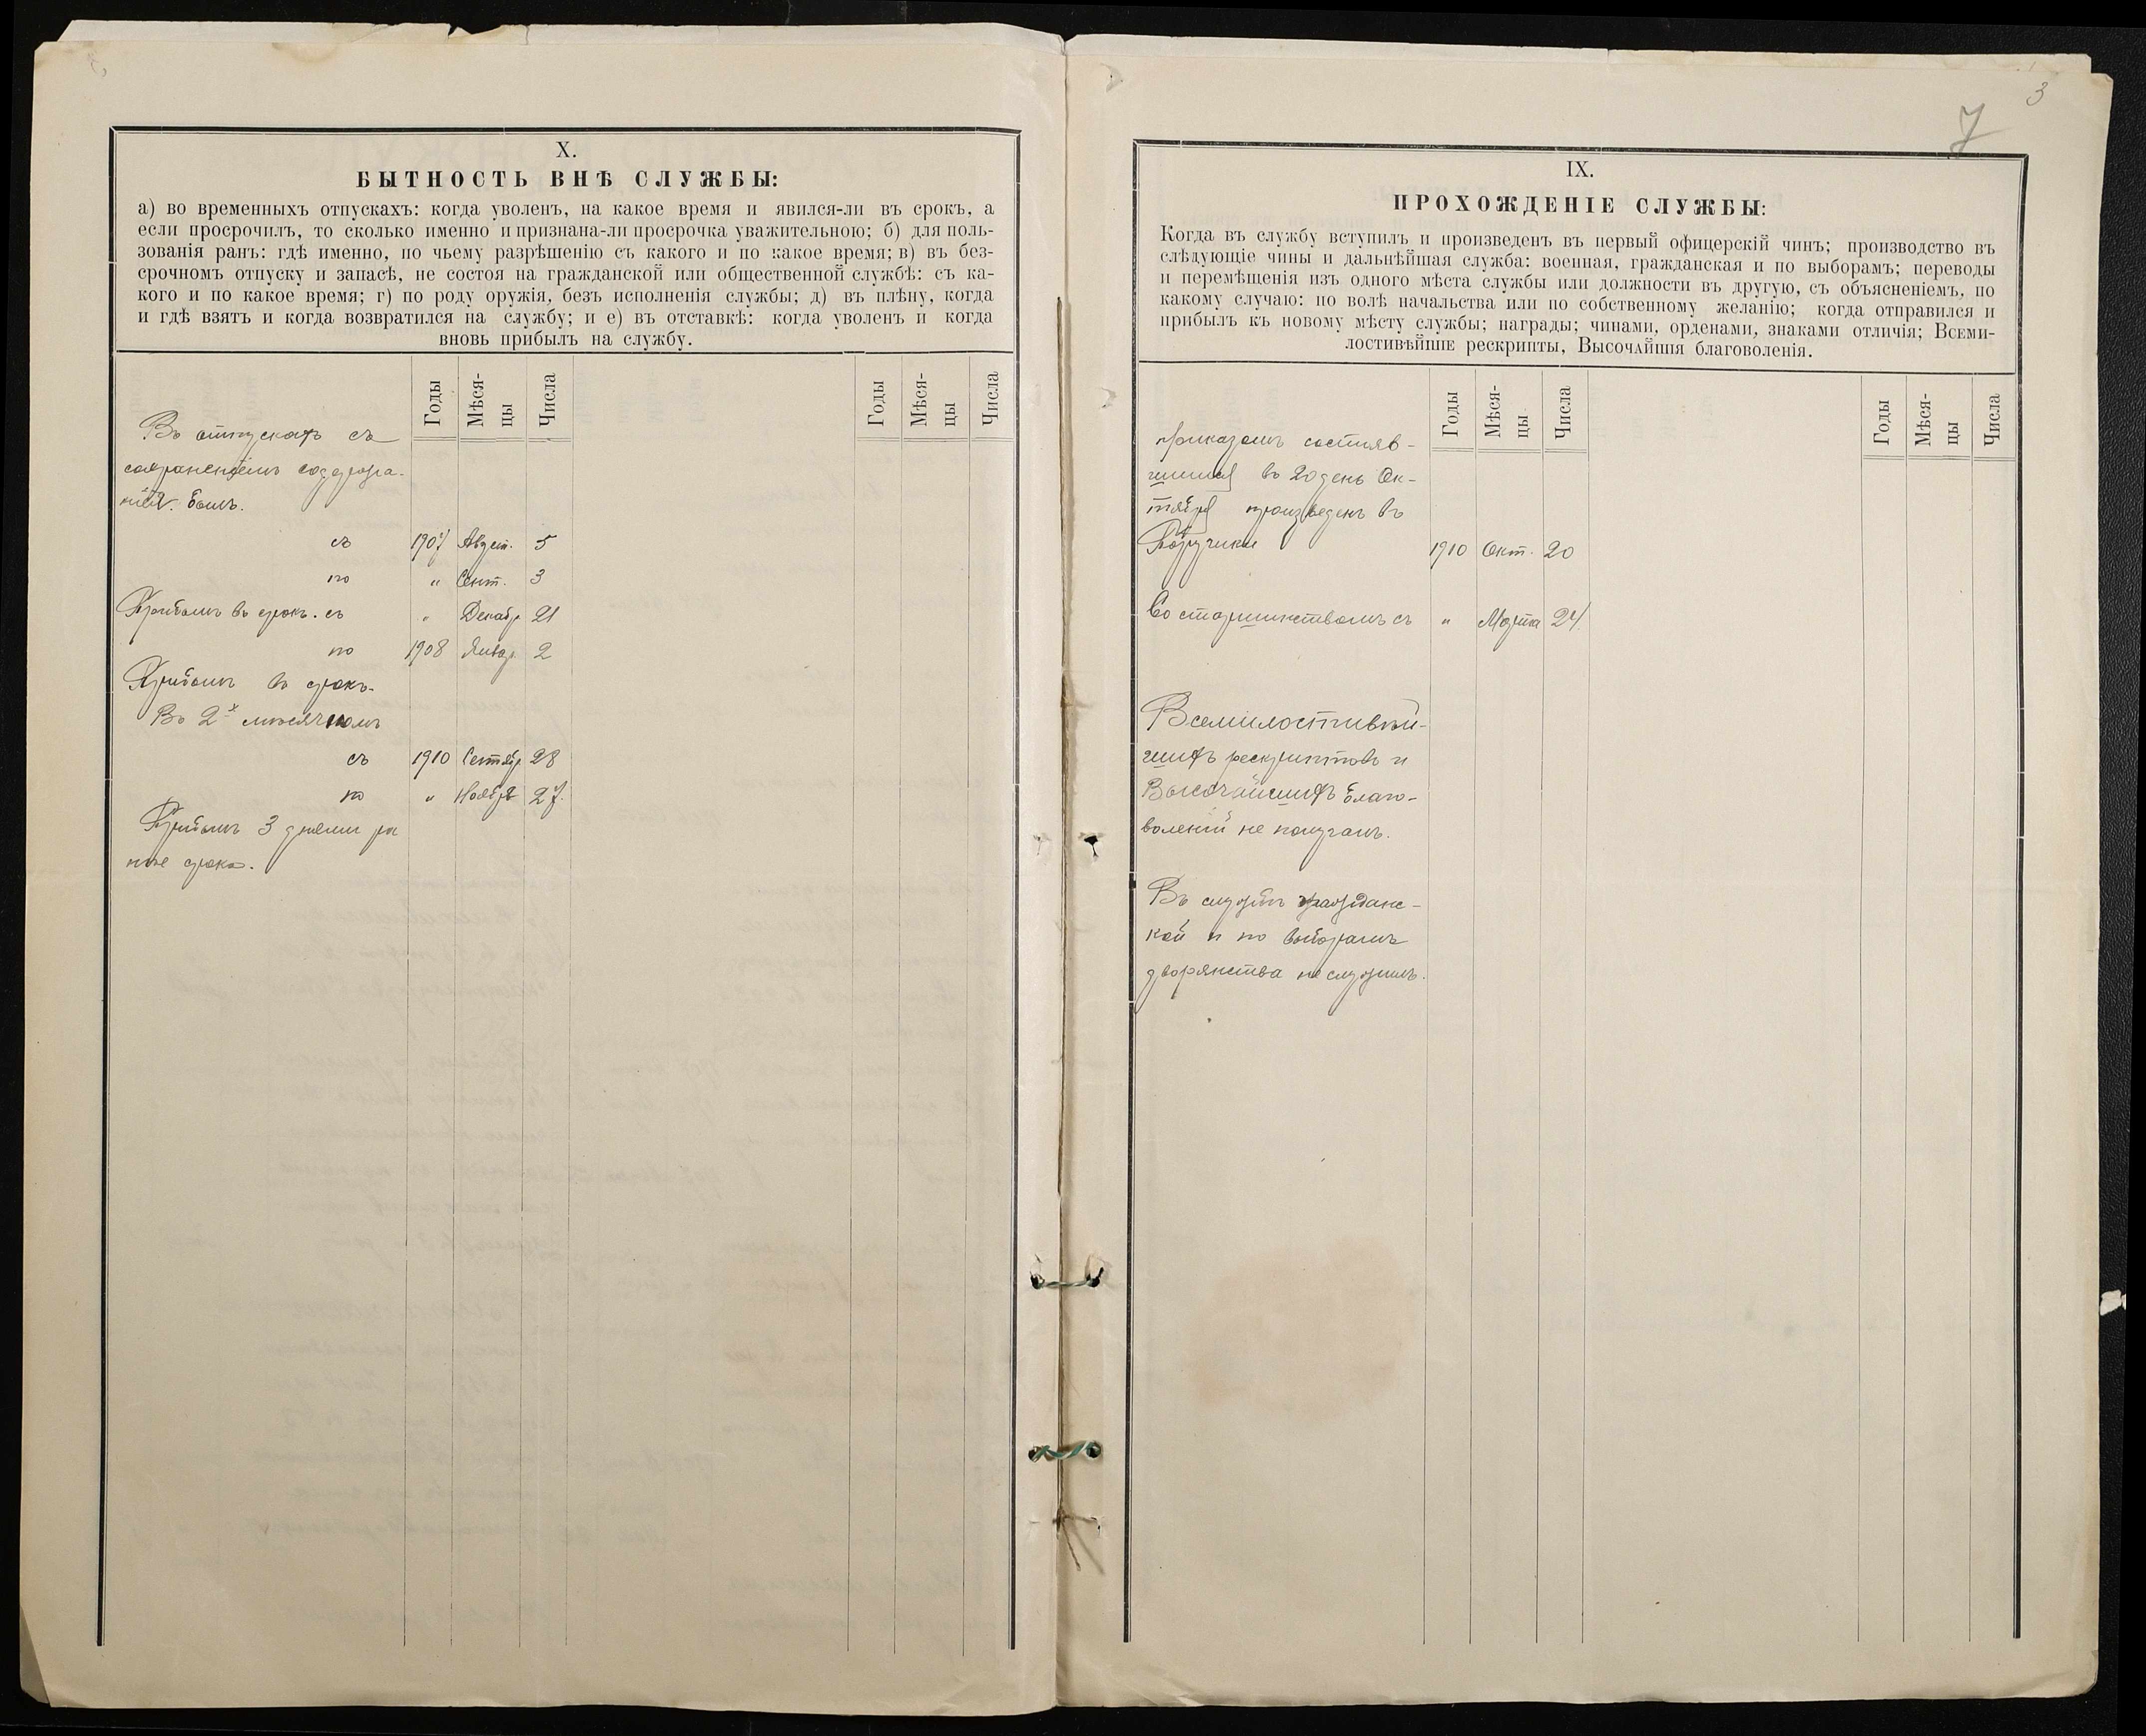 X.
БЫТНОСТЬ ВНѢ СЛУЖБЫ:
а) во временныхъ отпускахъ: когда уволенъ, на какое время и явился-ли въ срокъ, а
если просрочилъ, то сколько именно и признана-ли просрочка уважительною; б) для поль-
зованія ранъ: гдѣ именно, по чьему разрѣшенію съ какого и по какое время; в) въ без-
срочномъ отпуску и запасѣ, не состоя на гражданской или общественной службѣ: съ ка-
кого и по какое время; г) по роду оружія, безъ исполненія службы; д) въ плѣну, когда
и гдѣ взятъ и когда возвратился на службу; и е) въ отставкѣ: когда уволенъ и когда
вновь прибылъ на службу.
Годы Мѣся-цы Числа Годы Мѣся-цы Числа
Въ отпускахъ съ
сохраненіемъ содержа-
нія былъ.
съ 1907 Август. 5
по " Сент. 3
Прибылъ въ срокъ. съ " Декабр 21
по 1908 Январ. 2
Прибылъ въ срокъ.
Въ 2х мѣсячномъ
съ 1910 Сентябр 28
по " Ноября 27.
Прибылъ 3 днями ра
нѣе срока.
3
7
IX.
ПРОХОЖДЕНІЕ СЛУЖБЫ:
Когда въ службу вступилъ и произведенъ въ первый офицерскій чинъ; производство въ
слѣдующіе чины и дальнѣйшая служба: военная, гражданская и по выборамъ; переводы
и перемѣщенія изъ одного мѣста службы или должности въ другую, съ объясненіемъ, по
какому случаю: по волѣ начальства или по собственному желанію; когда отправился и
прибылъ къ новому мѣсту службы; награды; чинами, орденами, знаками отличія; Всеми-
лостивѣйшіе рескрипты, Высочайшія благоволенія.
Годы Мѣся-цы Числа Годы Мѣся-цы Числа
приказомъ состояв-
шимся въ 20 день Ок-
тября произведенъ въ
Поручики 1910 Окт. 20
Со старшинствомъ съ " Марта 24.
Всемилостивѣй-
шихъ рескриптовъ и
Высочайшихъ благо-
воленій не получалъ.
Въ службѣ граждане-
кой и по выборамъ
дворянства не служилъ.